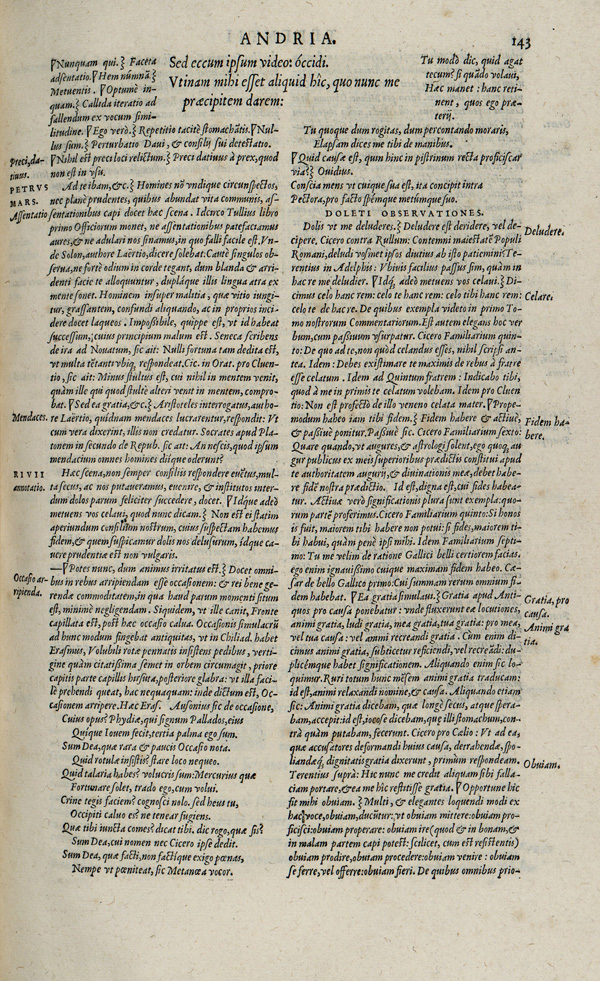 ANDRIA.
143
Sed eccum ipsum video: óccidi.
Vtinam mihi esset aliquid hîc, quo nunc me
præcipitem darem:
¶Nunquam qui.⁆ Faceta
adsentatio. ¶Hem númnā⁆
Metuentis. ¶Optume in-
quam.⁆ Callida iteratio ad
fallendum ex vocum simi-
litudine. ¶Ego verò.⁆ Repetitio tacitè stomachātis. ¶Nul-
lus sum.⁆ Perturbatio Daui, & consilij sui detectatio.
¶Nihil est preci loci relictum.⁆ Preci datiuus à prex, quod
non est in vsu.
Preci, da-
tiuus.
PETRVS
MARS.
Assentatio
Ad te ibam, &c.⁆ Homines nō vndique circunspectos,
nec planè prudentes, quibus abundat vita communis, as-
sentationibus capi docet hac scena. Idcirco Tullius libro
primo Officiorum monet, ne assentationibus patefactamus
aures, & ne adulari nos sinamus, in quo falli facile est. Vn-
de Solon, authore Laërtio, dicere solebat. Cautè singulos ob-
serua, ne fortè odium in corde tegant, dum blanda & arri-
denti facie te alloquuntur, duplǽque illis lingua atra ex
mente sonet. Hominem insuper malitia, qua vitio iungi-
tur, grassantem, confundi aliquando, ac in proprios inci-
dere docet laqueos. Impossibile, quippe est, vt id habeat
successum, cuius principium malum est. Seneca scribens
de ira ad Nouatum, sic ait: Nulli fortuna tam dedita est,
vt multa tētanti vbiq; respondeat. Cic. in Orat. pro Cluen-
tio, sic ait: Minus stultus est, cui nihil in mentem venit,
quàm ille qui quod stultè alteri venit in mentem, compro-
bat. ¶Sed ea gratia, &c.⁆ Aristoteles interrogatus, autho-
re Laërtio, quidnam mendaces lucrarentur, respondit: Vt
cum vera dixerint, illis non credatur. Socrates apud Pla-
tonem in secundo de Repub. sic ait: An nescis, quod ipsum
mendacium omnes homines dísque oderunt?
Mendaces.
RIVII
annotatio.
Hæc scena, non semper consiliis respondere euētus, mul-
ta secus, ac nos putaueramus, euenire, & institutos inter-
dum dolos parum feliciter succedere, docet. ¶Idque adeò
metuens vos celaui, quod nunc dicam.⁆ Non est ei statim
aperiundum consilium nostrum, cuius suspectam habemus
fidem, & quem suspicamur dolis nos delusurum, idque ca-
uere prudentiæ est non vulgaris.
—¶Potes nunc, dum animus irritatus est.⁆ Docet omni-
bus in rebus arripiendam esse occasionem: & rei bene ge-
rendæ commoditatem, in qua haud parum momenti situm
est, minimè negligendam. Siquidem, vt ille canit, Fronte
capillata est, post hæc occasio calua. Occasionis simulacrū
ad hunc modum fingebat antiquitas, vt in Chiliad. habet
Erasmus, Volubili rotæ pennatis insistens pedibus, verti-
gine quàm citatissima semet in orbem circumagit, priore
capitis parte capillis hirsuta, posteriore glabra: vt illa faci-
lè prehendi queat, hac nequaquam: inde dictum est, Oc-
casionem arripere. Hæc Eras. Ausonius sic de occasione,
Occasio ar-
ripienda.
Cuius opus? Phydiæ, qui signum Pallados, eius
Quique Iouem fecit, tertia palma ego sum.
Sum Dea, quæ rara & paucis Occasio nota.
Quid rotulæ insistis? stare loco nequeo.
Quid talaria habes? volucris sum: Mercurius quæ
Fortunare solet, trado ego, cum volui.
Crine tegis faciem? cognosci nolo. sed heus tu,
Occipiti caluo es? ne tenear fugiens.
Quæ tibi iuncta comes? dicat tibi. dic rogo, quæ sis?
Sum Dea, cui nomen nec Cicero ipse dedit.
Sum Dea, quæ facti, non factique exigo pœnas,
Nempe vt pœniteat, sic Metanœa vocor.
Tu modò dic, quid agat
tecum? si quādo volaui,
Hac manet: hanc reti-
nent, quos ego præ-
terij.
Tu quoque dum rogitas, dum percontando moraris,
Elapsam dices me tibi de manibus.
¶Quid causæ est, quin hinc in pistrinum recta proficiscar
via?⁆ Ouidius.
Conscia mens vt cuique sua est, ita concipit intra
Pectora, pro facto spémque metúmque suo.
DOLETI OBSERVATIONES.
Dolis vt me deluderes.⁆ Deludere est deridere, vel de-
cipere. Cicero contra Rullum: Contemni maiestatē Populi
Romani, deludi vósmet ipsos diutius ab isto patiemini? Te-
rentius in Adelphis: Vbinis facilius passus sim, quàm in
hac re me deludier. ¶Idq; adeò metuens vos celaui.⁆ Di-
cimus celo hanc rem: celo te hanc rem: celo tibi hanc rem:
celo te de hac re. De quibus exempla videto in primo To-
mo nostrorum Commentariorum. Est autem elegans hoc ver
bum, cum passiuum vsurpatur. Cicero Familiarium quin-
to: De quo ad te, non quòd celandus esses, nihil scripsi an-
tea. Idem: Debes existimare te maximis de rebus à fratre
esse celatum. Idem ad Quintum fratrem: Indicabo tibi,
quod à me in primis te celatum volebam. Idem pro Cluen
tio: Non est profectò de illo veneno celata mater. ¶Prope-
modum habeo iam tibi fidem.⁆ Fidem habere & actiuè,
& passiuè ponitur. Passiuè sic. Cicero Familiarium sexto:
Quare quando, vt augures, & astrologi solent, ego quoq; au
gur publicus ex meis superioribus prædictis constitui apud
te authoritatem augurij, & diuinationis meæ, debet habe-
re fidē nostra prædictio. Id est, digna est, cui fides habea-
tur. Actiuæ verò significationis plura sunt exempla: quo-
rum partē proferimus. Cicero Familiarium quinto: Si honos
is fuit, maiorem tibi habere non potui: si fides, maiorem ti-
bi habui, quàm penè ipsi mihi. Idem Familiarium septi-
mo: Tu me velim de ratione Gallici belli certiorem facias.
ego enim ignauissimo cuique maximam fidem habeo. Cæ-
sar de bello Gallico primo. Cui summam rerum omnium fi-
dem habebat. ¶Ea gratia simulaui.⁆ Gratia apud Anti-
quos pro causa ponebatur: vnde fluxerunt eæ locutiones,
animi gratia, ludi gratia, mea gratia, tua gratia: pro mea,
vel tua causa: vel animi recreandi gratia. Cum enim di-
cimus animi gratia, subticetur reficiendi, vel recreādi: du-
plicémque habet significationem. Aliquando enim sic lo-
quimur. Ruri totum hunc mēsem animi gratia traducam:
id est, animi relaxandi nomine, & causa. Aliquando etiam
sic: Animi gratia dicebam, quæ longè secus, atque spera-
bam, accepit: id est, iocose dicebam, quę illi stomachum, con-
trà quàm putabam, fecerunt. Cicero pro Cælio: Vt ad ea,
quæ accusatores deformandi huius causa, detrahendæ, spo-
liandæq; dignitatis gratia dixerunt, primùm respondeam.
Terentius suprà: Hic nunc me credit aliquam sibi falla-
ciam portare, & ea me hîc restitisse gratia. ¶Opportune hic
fit mihi obuiam.⁆ Multi, & elegantes loquendi modi ex
hac voce, obuiam, ducūtur: vt obuiam mittere: obuiam pro-
ficisci: obuiam properare: obuiam ire (quod & in bonam, &
in malam partem capi potest: scilicet, cum est resistentis)
obuiam prodire, obuiam procedere: obuiam venire: obuiam
se ferre, vel offerre: obuiam fieri. De quibus omnibus prio-
Deludere.
Celare.
Fidem ha-
bere.
Gratia, pro
causa.
Animi gra
tia.
Obuiam.